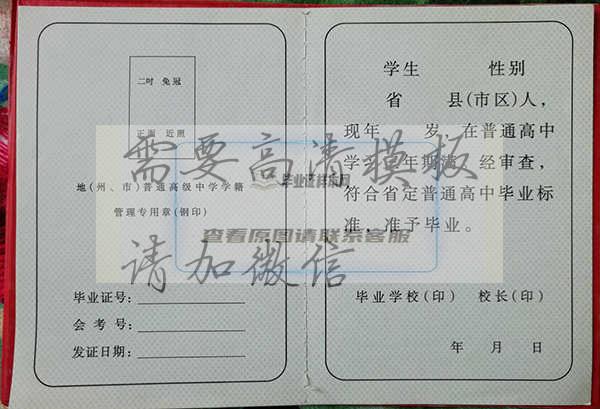 二吋 免冠
正面 近照
地(州、市)普通高级中学学籍
管理专用章(钢印)
毕业证号:
会考号:
发证日期:
学生 性别
省 县(市区)人,
现年 岁,在普通高中
学习 年期满,经审查,
符合省定普通高中毕业标
准,准予毕业。
毕业学校(印) 校长(印)
年 月 日
需要高清模板
毕业证样本网
查看原图请联系客服
请加微信